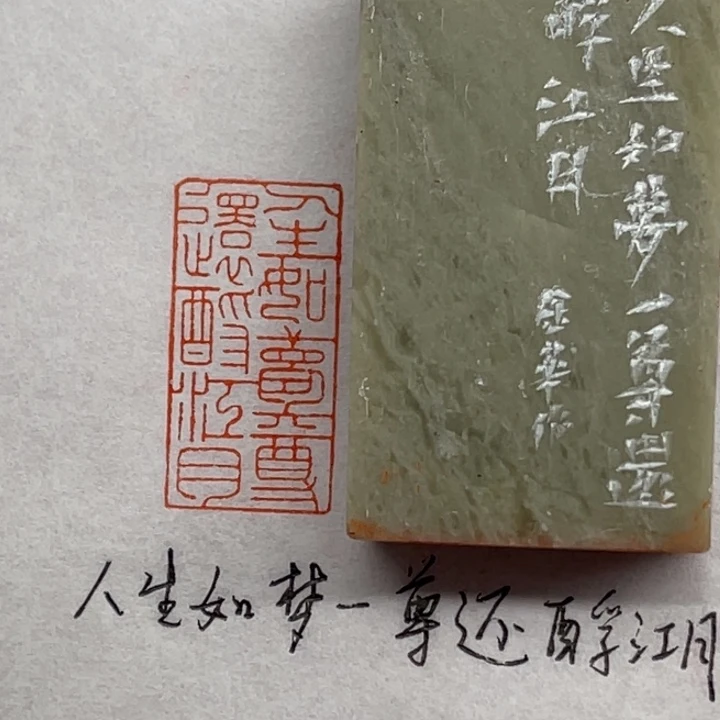 人生如夢一尊
還酹江月
人生如夢一尊還
酹江月
金華作
人生如梦一尊还酹江月